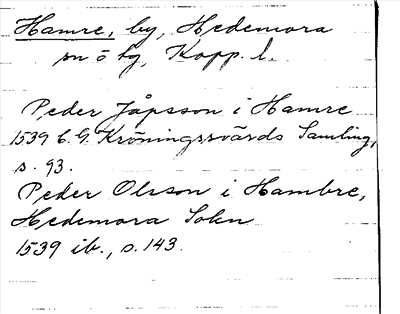 Hamre, by, Hedemora
sn o hg, Kopp. l.
Peder Jåpsson i Hamre
1539 C. G. Kröningssvärds Samling,
s. 93.
Peder Olsson i Hambre,
Hedemora Sokn
1539 ib., s. 143.